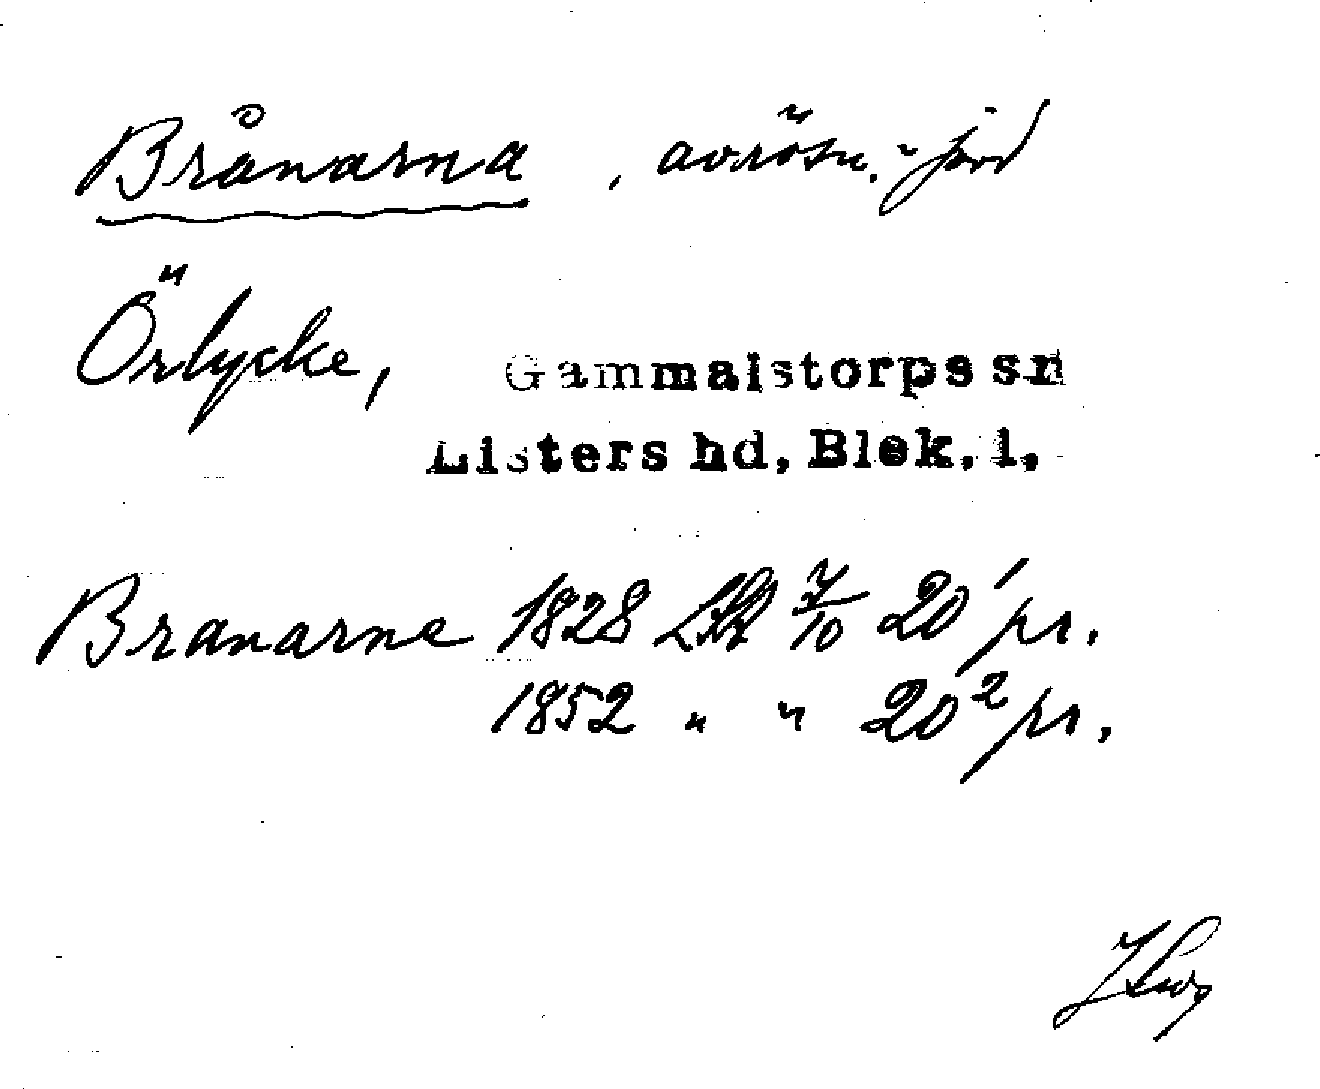 Brånarna, avrösn.-jord
Örlycke, Gammalstorps sn
Listers hd, Blek. l.
Branarne 1828 LSA 7/10 20¹ pr.
1852 " " 20² pr.